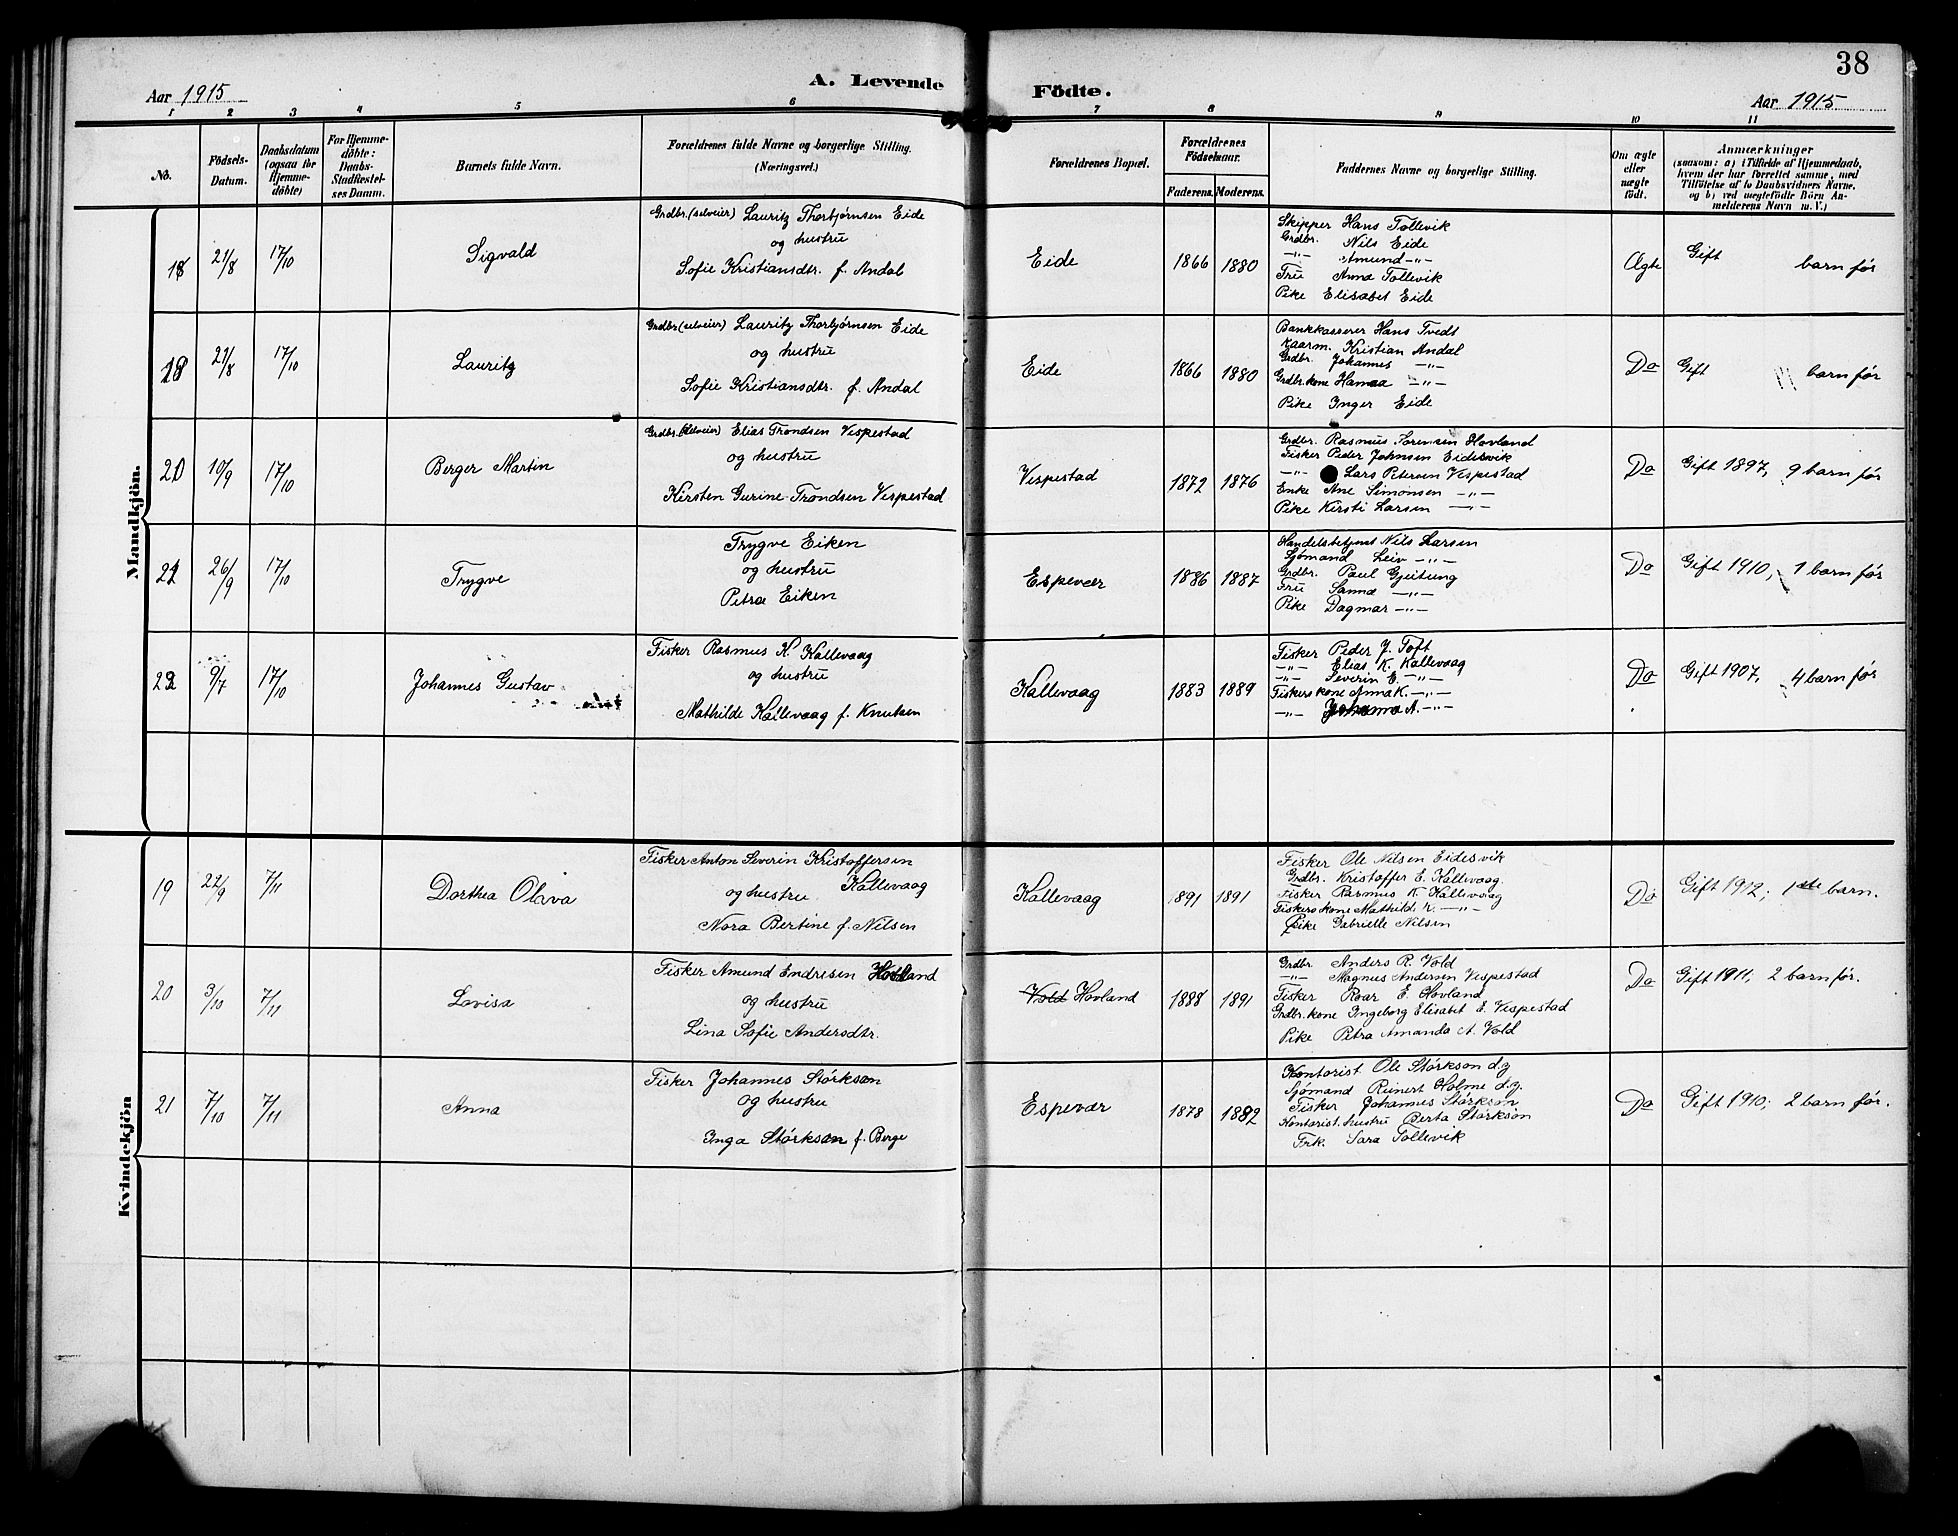 38
Aar 1915
A. Levende
Födte.
Aar 1915
1 2 3 4 5 6 7 8 9 10 11
No.
Födsels-
Datum.
Daabsdatum
(ogsaa for
Hjemme-
döbte)
For Hjemme-
döbte:
Daabs-
Stadfæstel-
ses Datum.
Barnets fulde Navn.
Forældrenes fulde Navne og borgerlige Stilling.
(Næringsvei.)
Forældrenes Bopæl.
Forældrenes
Födselsaar.
Faderens. Moderens.
Faddernes Navne og borgerlige Stilling.
Om ægte
eller
uægte
födt.
Anmærkninger
(saasom: a) i Tilfælde af Hjemmedaab,
hvem der har forrettet samme, med
Tilföielse af to Daabsvidners Navne,
og b) ved uægtefödte Börn An-
melderens Navn m. V.)
Mandkjön.
18 21/8 17/10 Sigvald
Grdbr. (selveier) Lauritz Thorbjørnsen Eide
og hustru
Sofie Kristiansdtr. f. Andal
Eide 1866 1880
Skipper Hans Tollevik
Grdbr. Nils Eide
-"- Amund -"-
Fru Anna Tollevik
Pike Elisabet Eide
Ægte Gift barn før
21/8 17/10 Lauritz
Grdbr. (selveier) Lauritz Thorbjørnsen Eide
og hustru
Sofie Kristiansdtr. f. Andal
Eide 1866 1880
Bankkasserer Hans Tvedt
Kaarm. Kristian Andal
Grdbr. Johannes -"-
Grdbr. kone Hanna -"-
Pike Inger Eide
Do Gift barn før
20 10/9 17/10 Berger Martin
Grdbr. (selveier) Elias Trondsen Vespestad
og hustru
Kirsten Gurine Trondsen Vespestad
Vespestad 1872 1876
Grdbr. Rasmus Sørensen Hovland
Fisker Peder Johnsen Eidesvik
-"- Lars Petersen Vespestad
Enke Ane Simonsen -"-
Pike Kirsti Larsen -"-
Do Gift 1897, 9 barn før
26/9 17/10 Trygve
Trygve Eiken
og hustru
Petra Eiken
Espevær 1886 1887
Handelsbetjent Nils Larsen
Sjømand Leiv -"-
Grdbr. Paul Gjeitung
Fru Sanna -"-
Pike Dagmar -"-
Do Gift 1910, 1 barn før
22 9/7 17/10 Johannes Gustav
Fisker Rasmus K. Kallevaag
og hustru
Mathilde Kallevaag f. Knutsen
Kallevaag 1883 1889
Fisker Peder J. Toft
-"- Elias K. Kallevaag
-"- Severin E. -"-
Fiskers kone Anna K. -"-
-"- Johanna A. -"-
Do Gift 1907, 4 barn før
Kvindekjön
19 22/9 7/11 Dorthea Olava
Fisker Anton Severin Kristoffersen
og hustru Kallevaag
Nora Bertine f. Nilsen
Kallevaag 1891 1891
Fisker Ole Nilsen Eidesvik
Grdbr. Kristoffer E. Kallevaag
Fisker Rasmus K. Kallevaag
Fiskers kone Mathilde K. -"-
Pike Gabrielle Nilsen
Do Gift 1912; 1ste barn.
20 3/10 7/11 Lovisa
Fisker Amund Endresen Hovland
og hustru
Lina Sofie Andersdtr.
Vold Hovland 1888 1891
Grdbr Anders R. Vold
-"- Magnus Andersen Vespestad
Fisker Roar E. Hovland
Grdbr. kone Ingeborg Elisabet E. Vespestad
Pike Petra Amanda A. Vold
Do Gift 1911, 2 barn før.
21 7/10 7/11 Anna
Fisker Johannes Størkson
og hustru
Inga Størkson f. Berge
Espevær 1878 1882
Kontorist Ole Størkson d.y
Sjømand Reinert Holme d.y.
Fisker Johannes Størkson
Kontorist. hustru Berta Størkson
Frk. Sara Tollevik
Do Gift 1910; 2 barn før.